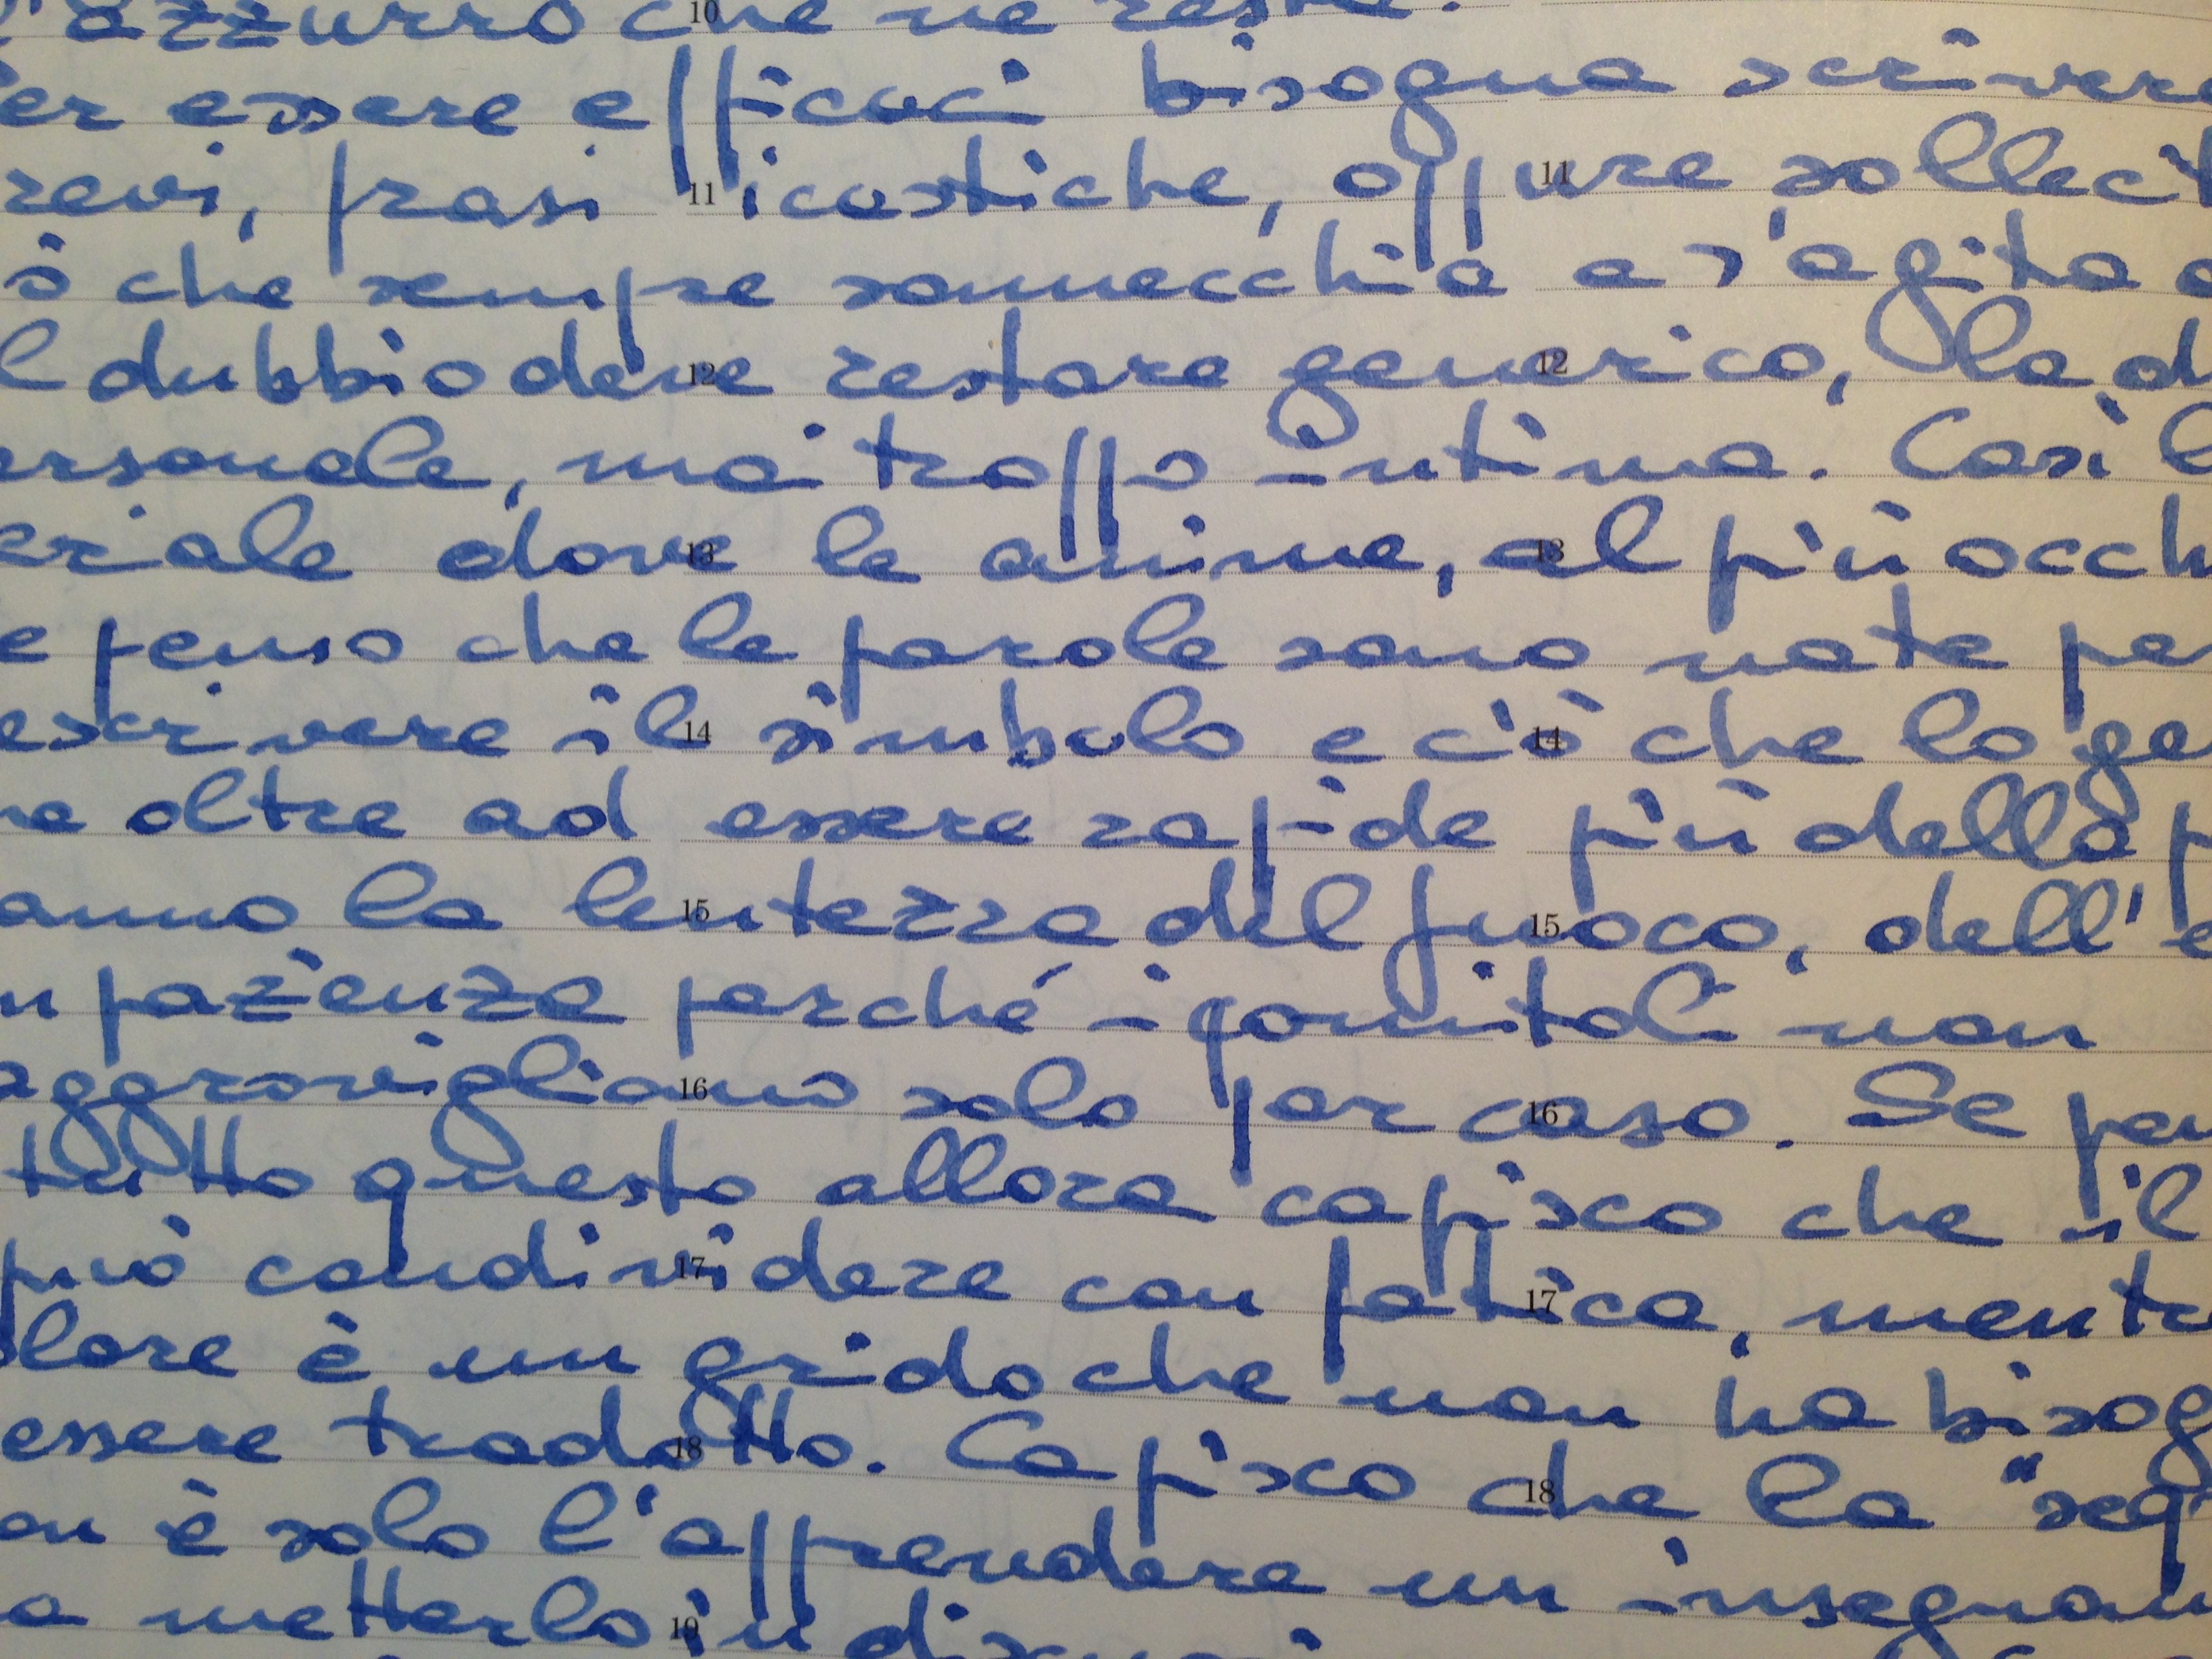 azzurro che ne reste.
er essere efficaci bisogna scrivere
revi, frasi icastiche, oppure sollecit
ò che sempre sonnecchia a s'agita
l dubbio deve restare generico, la d
ersonale, mai troppo intima. Così l
eriale dove le anime, al più occh
e penso che le parole sono nate per
escrivere il simbolo e ciò che lo ge
ne oltre ad essere rapide più della p
anno la lentezza del fuoco, dell'e
n pazienza perché i gomitoli non
aggrovigliano solo per caso. Se pen
tutto questo allora capisco che il
può condividere con fatica, mentre
lore è un grido che non ha bisog
essere tradotto. Capisco che la "seq
on è solo l'apprendere un insegnam
a metterlo in